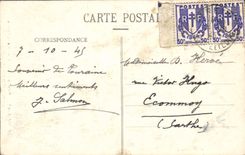 CARTE POSTAL
CORRESPONDANCE
7-10-45
Souvenir de Touraine
Meilleurs sentiments
J. Salmon
POSTES
POSTES
Mademoiselle B. Hervé
rue Victor Hugo
Ecommoy
(Sarthe)